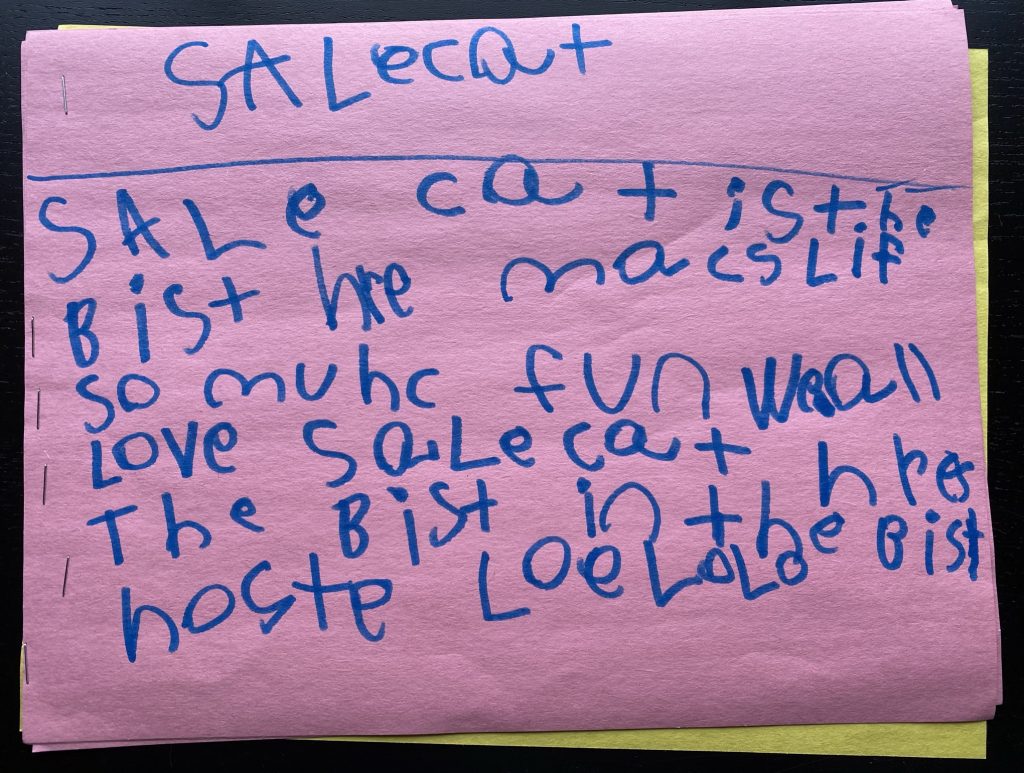 SALecat
SALe cat is the
Bist hre macs Lif
so muhc fun We all
Love SaLe cat hres
The Bist in the Bist
hoste LoeLoLo